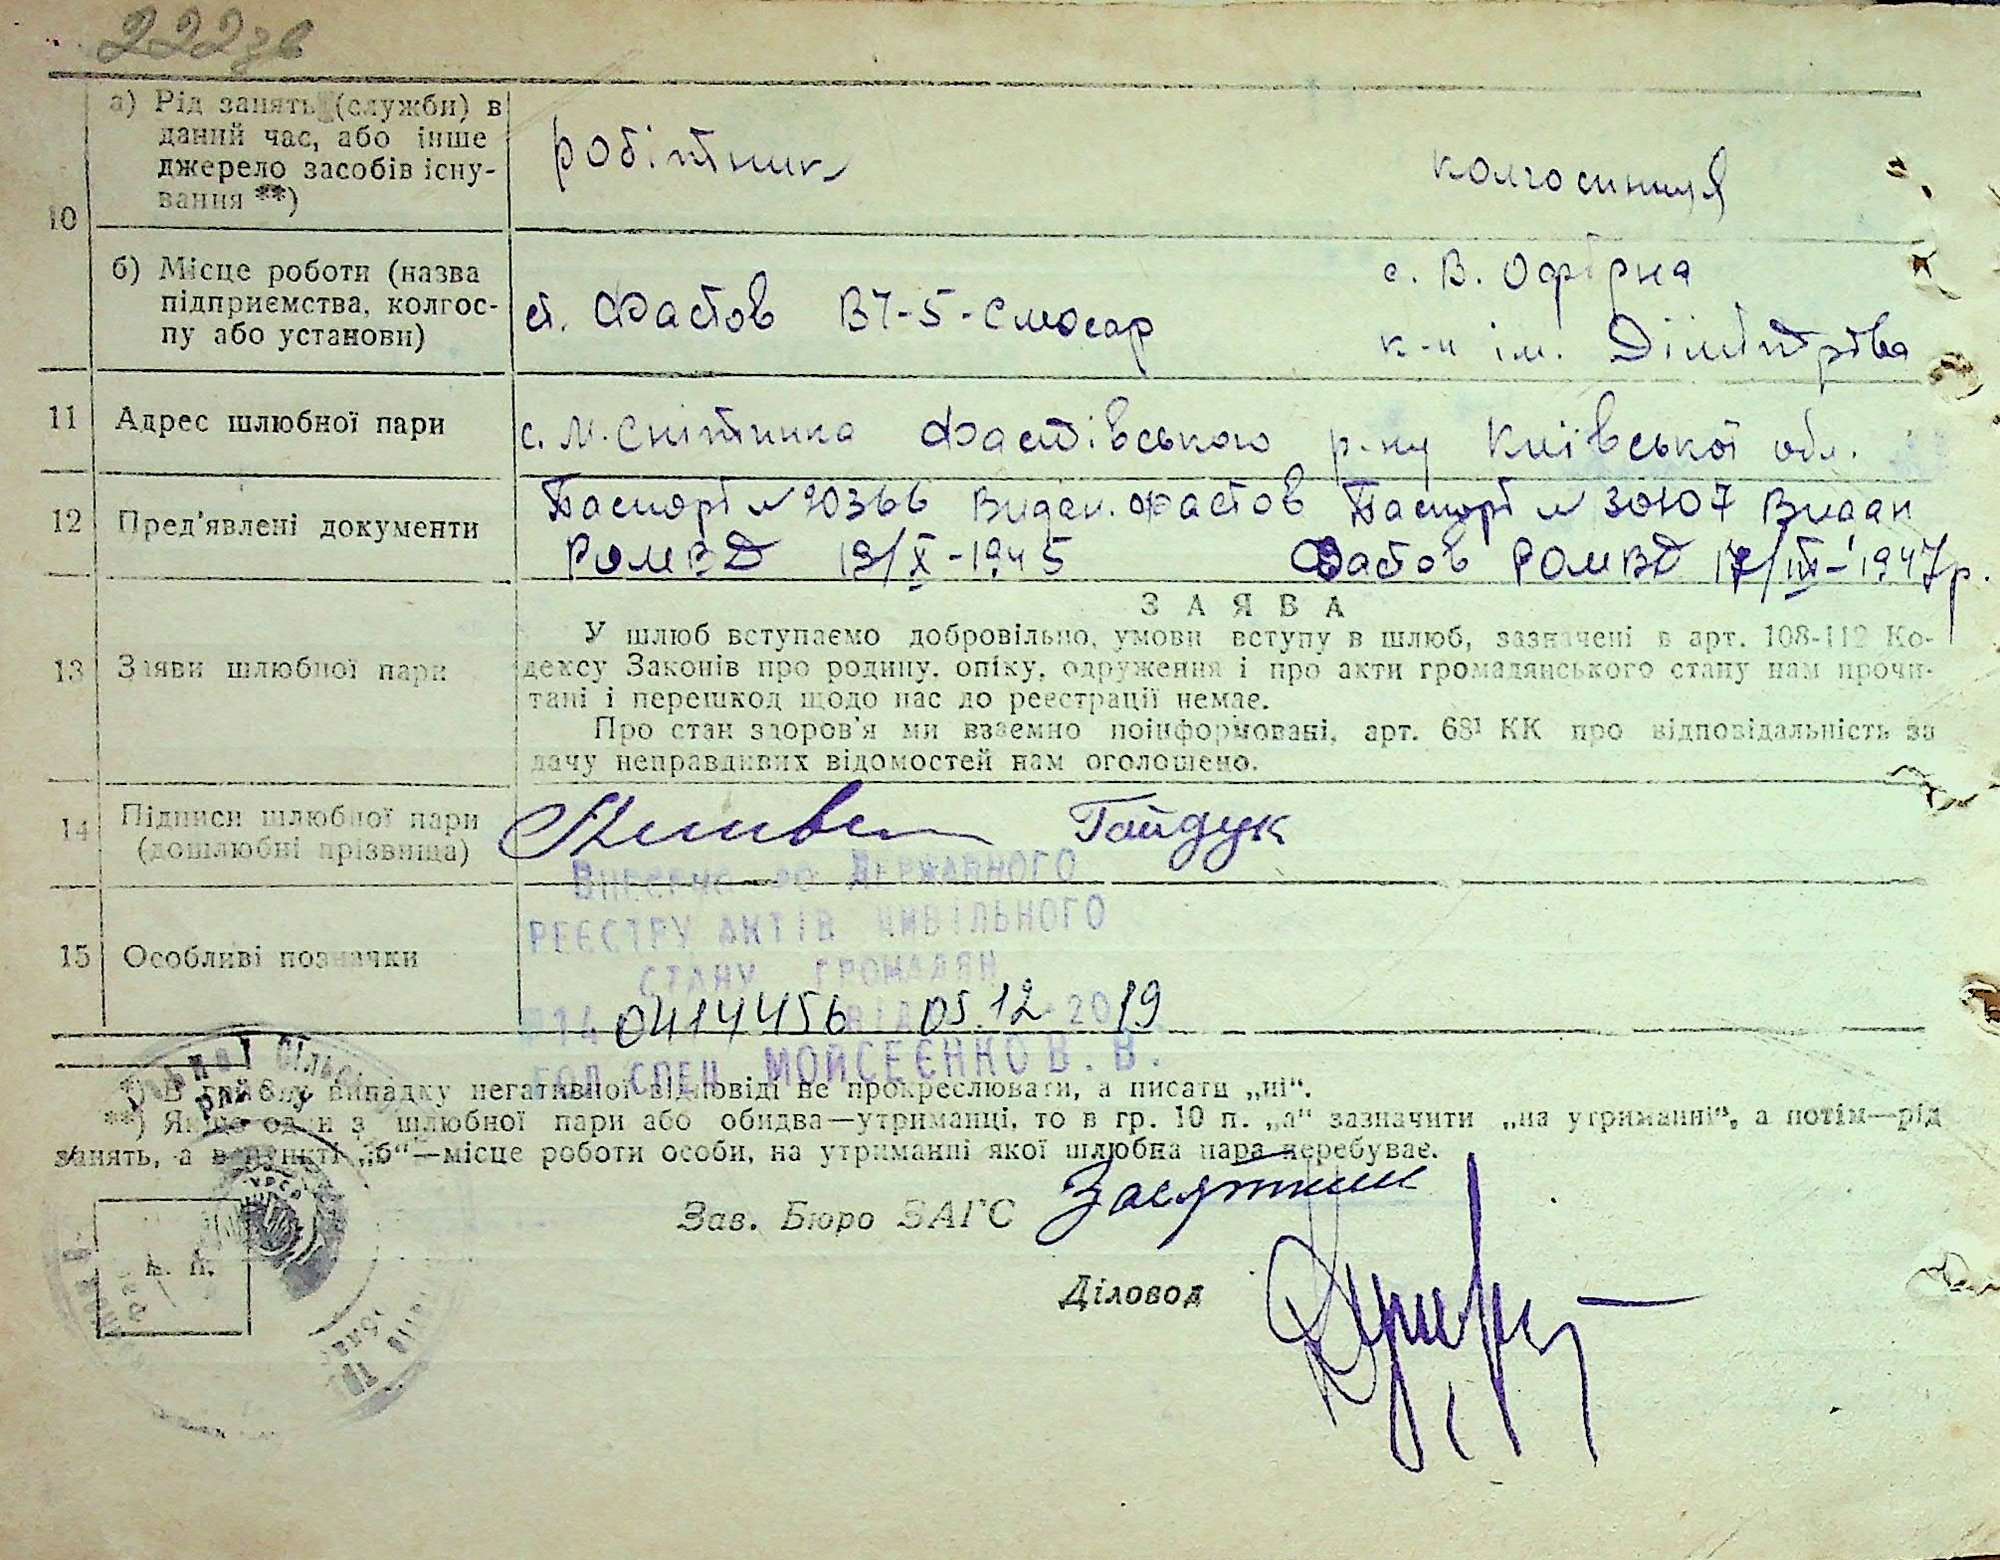 222зв
а) Рід занять (служби) в
даний час, або інше
джерело засобів існу-
вання **)
робітник
колгоспниця
10
б) Місце роботи (назва
підприємства, колгос-
пу або установи)
ст. Фастов ВЧ-5-Слюсар
с. В. Офірна
к-п ім. Дімітрова
11 Адрес шлюбної пари
с. М. Снітинка Фастівського р-ну Київської обл.
12 Пред'явлені документи
Паспорт № 90366 Видан. Фастов
РОМВД 19/X-1945
Паспорт № 30107 Видан
Фастов РОМВД 17/III-1947р.
13 Заяви шлюбної пари
ЗАЯВА
У шлюб вступаємо добровільно, умови вступу в шлюб, зазначені в арт. 108-112 Ко-
дексу Законів про родину, опіку, одруження і про акти громадянського стану нам прочи-
тані і перешкод щодо нас до реєстрації немає.
Про стан здоров'я ми взаємно поінформовані, арт. 68¹ КК про відповідальність за
дачу неправдивих відомостей нам оголошено.
14 Підписи шлюбної пари
(дошлюбні прізвища)
Гайдук
15 Особливі позначки
Внесено до Державного
реєстру актів цивільного
стану громадян
0414456 від 05.12 2019
гол спец Мойсеєнко В. В.
*) В гр. 6 у випадку негативної відповіді не прокреслювати, а писати „ні“.
**) Якщо один з шлюбної пари або обидва—утриманці, то в гр. 10 п. „а“ зазначити „на утриманні“, а потім—рід
занять, а в пункті „б“—місце роботи особи, на утриманні якої шлюбна пара перебуває.
Зав. Бюро ЗАГС
Діловод
м. п.